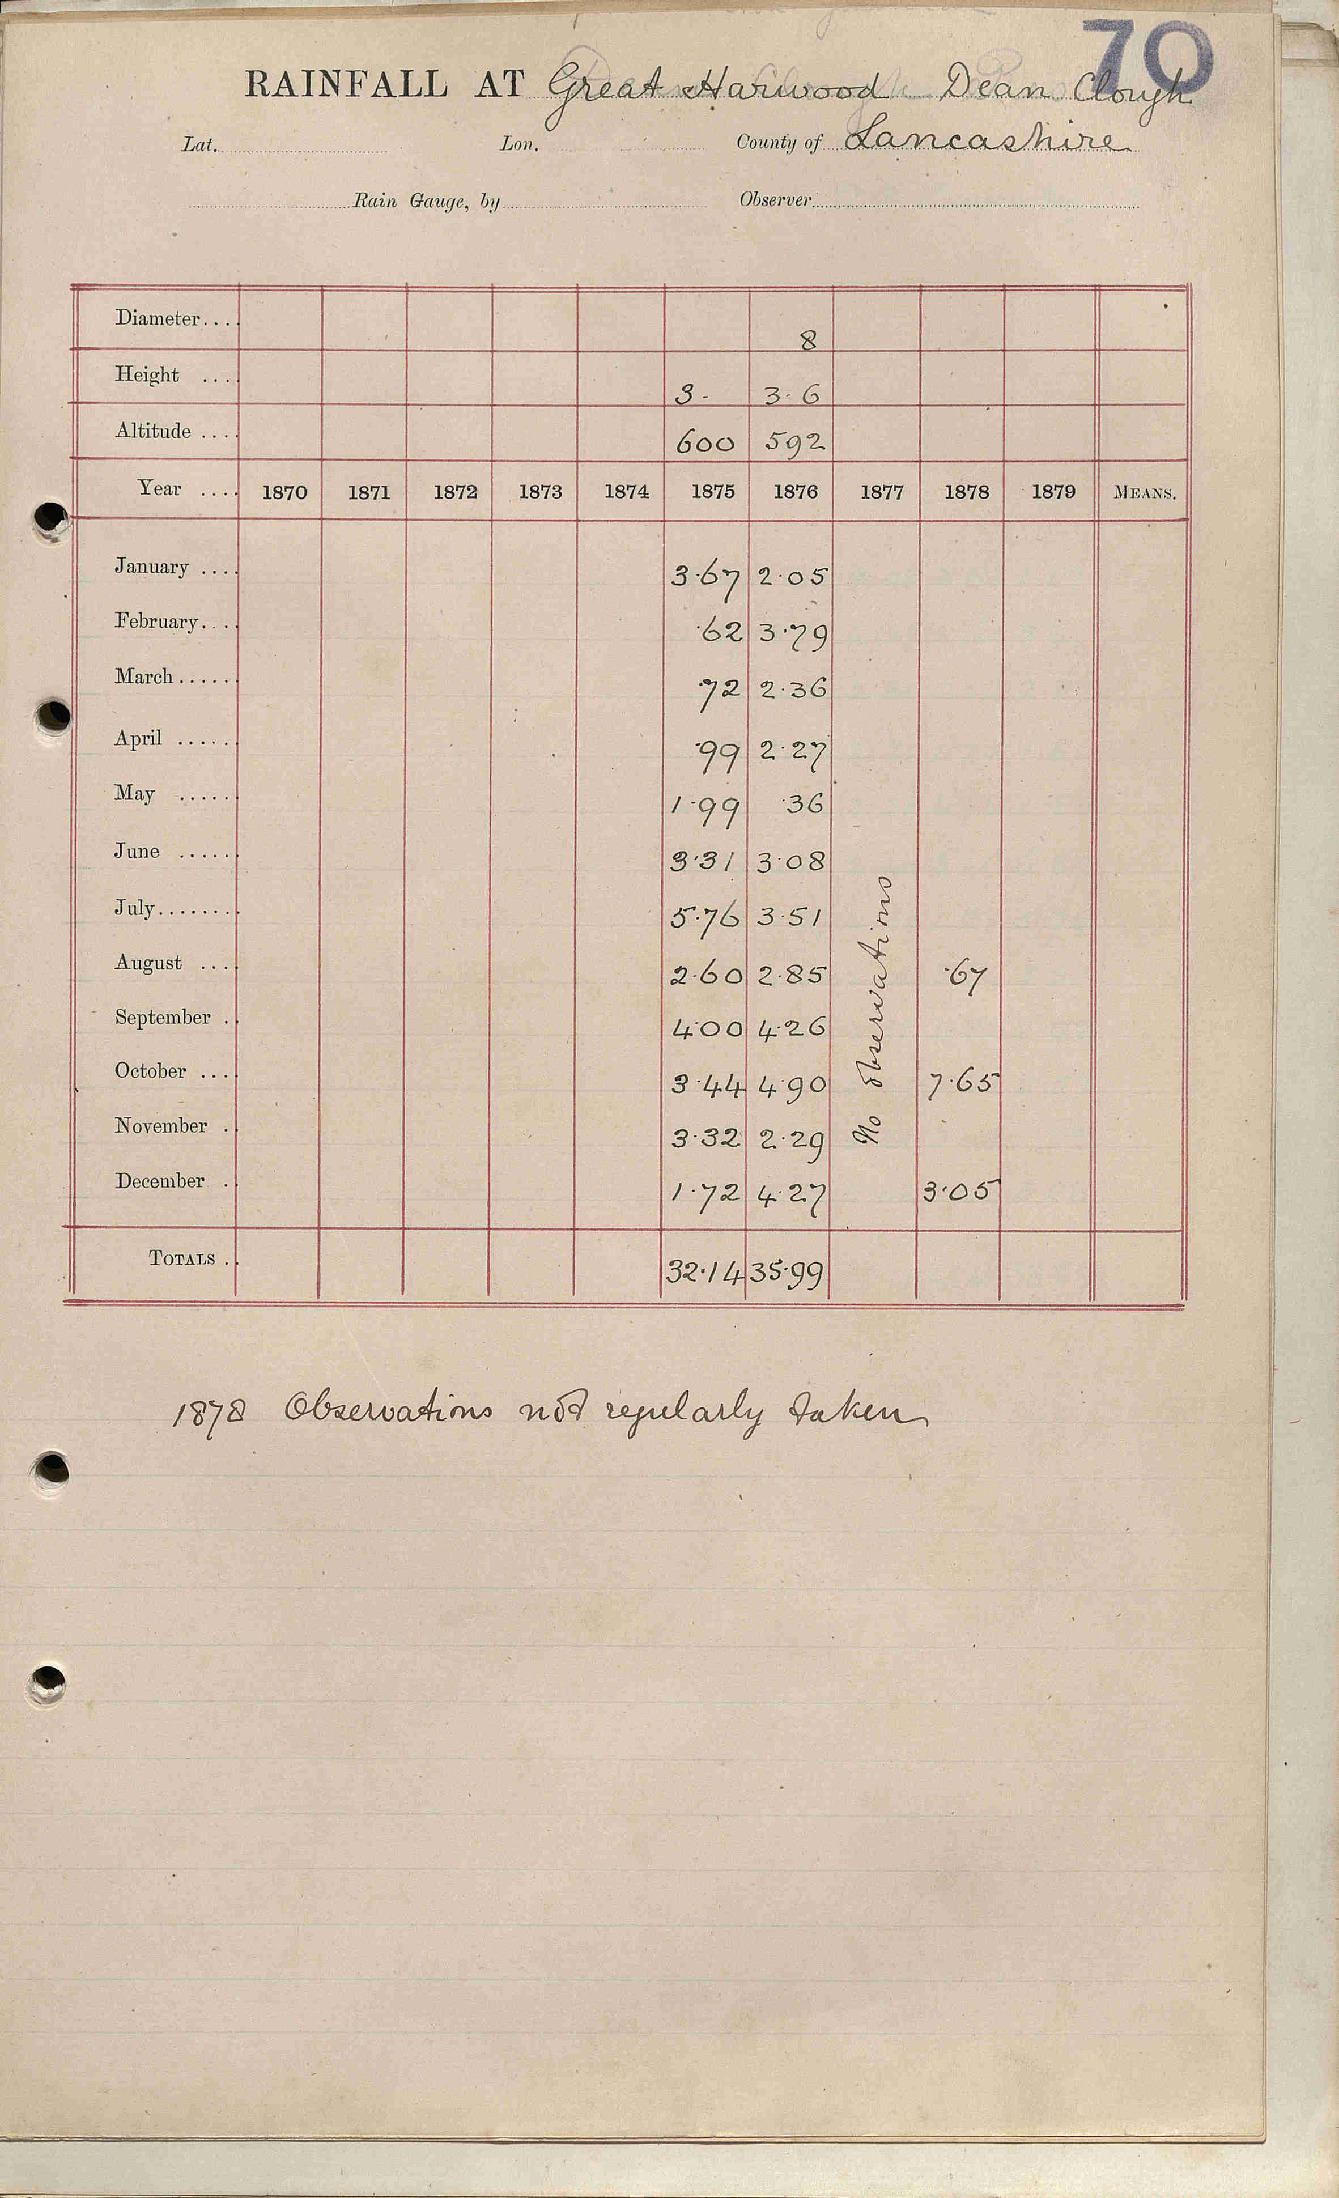 70
RAINFALL AT Great Harwood Dean Clough
Lat. Lon. County of Lancashire
Rain Gauge, by Observer
Diameter.... 8
Height .... 3· 3·6
Altitude .... 600 592
Year .... 1870 1871 1872 1873 1874 1875 1876 1877 1878 1879 MEANS.
January .... 3·67 2·05
February.... ·62 3·79
March ...... ·72 2·36
April ...... ·99 2·27
May ...... 1·99 ·36
June ...... 3·31 3·08
July........ 5·76 3·51
August .... 2·60 2·85 ·67
September .. 4·00 4·26
October .... 3·44 4·90 7·65
November .. 3·32 2·29
December .. 1·72 4·27 3·05
No observations
TOTALS .. 32·14 35·99
1878 Observations not regularly taken